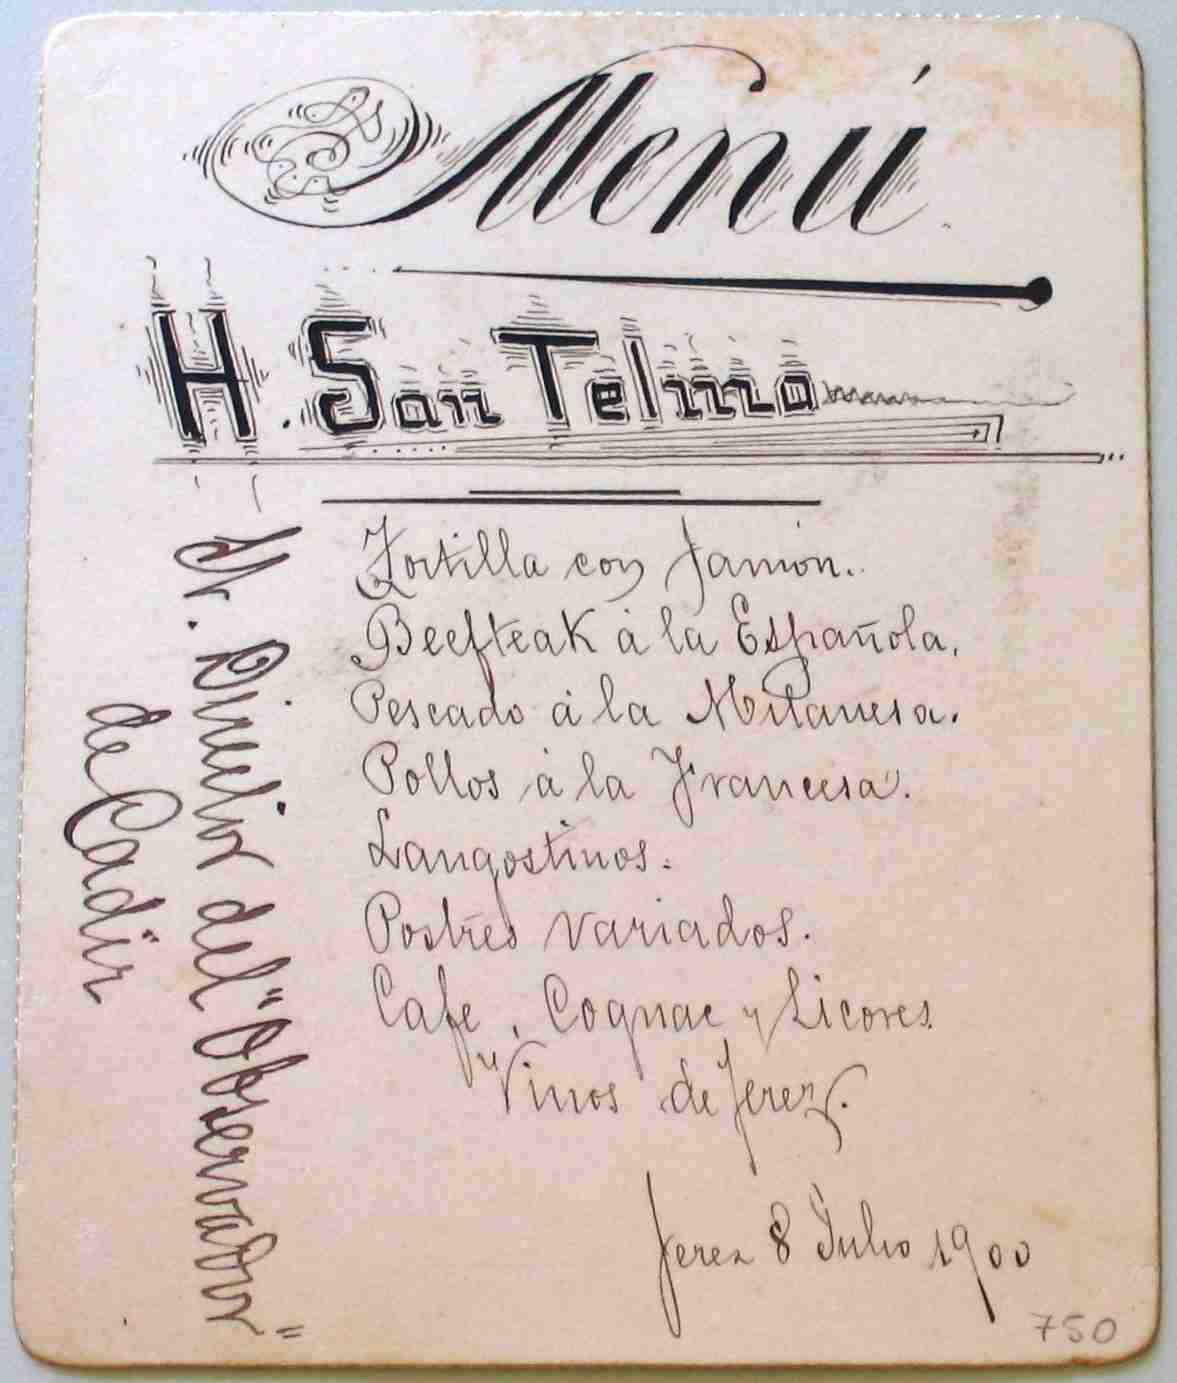 Menú
H. San Telmo
Tortilla con Jamón.
Beefteak á la Española.
Pescado á la Milanesa.
Pollos á la Francesa.
Langostinos.
Postres variados.
Cafe, Cognac y Licores
y Vinos de Jerez.
Jerez 8 Julio 1900
Sr. Director del "Observador"
de Cadiz
750